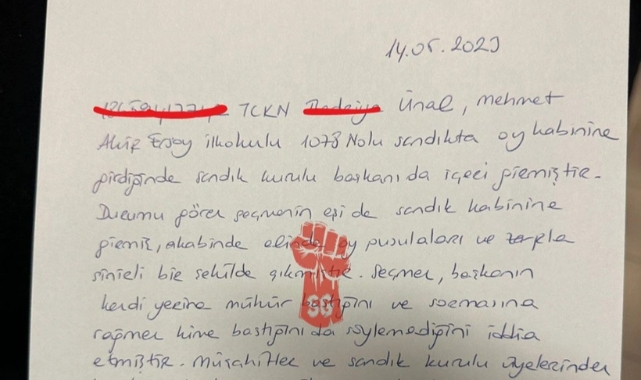 14.05.2023
TCKN Ünal, Mehmet
Akif Ersoy ilkokulu 1073 Nolu sandıkta oy kabinine
girdiğinde sandık kurulu başkanı da içeri girmiştir.
Durumu gören seçmenin eşi de sandık kabinine
girmiş, akabinde elinde oy pusulaları ve zarfla
sinirli bir şekilde çıkmıştır. Seçmen, başkanın
kendi yerine mühür bastığını ve sormasına
rağmen kime bastığını da söylemediğini iddia
etmiştir. Müşahitler ve sandık kurulu üyelerinden